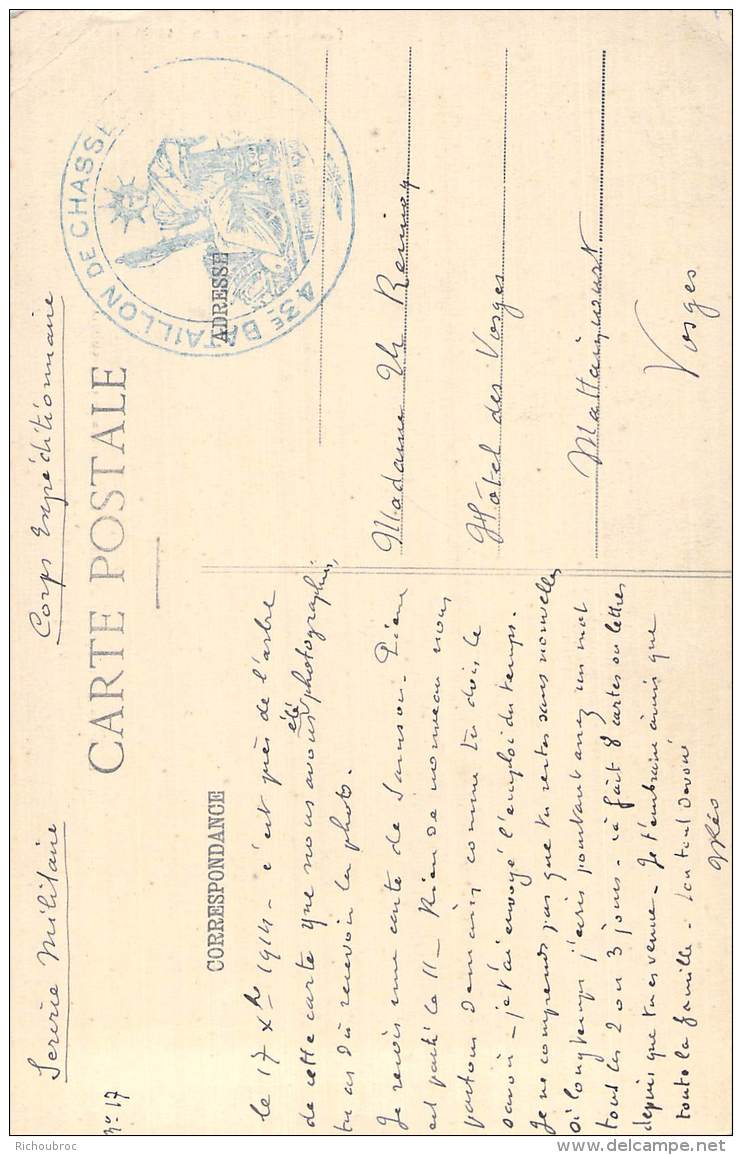 Service Militaire
Corps Expéditionnaire
n° 17
CARTE POSTALE
CORRESPONDANCE
ADRESSE
43E BATAILLON DE CHASSE
le 17 Xbre 1914 - c'est près de l'arbre
de cette carte que nous avons été photographiés,
tu as dû recevoir la photo.
Je reçois une carte de Samson. Pierre
est parti le 11 - Rien de nouveau nous
partons demain comme tu dois le
savoir - je t'ai envoyé l'emploi du temps.
Je ne comprends pas que tu restes sans nouvelles
si longtemps j'écris pourtant assez un mot
tous les 2 ou 3 jours - çà fait 8 cartes ou lettres
depuis que tu es venue - Je t'embrasse ainsi que
toute la famille - ton tout dévoué
Madame Th Remoy
Hôtel des Vosges
Mattaincourt
Vosges
Richoubroc
www.delcampe.net